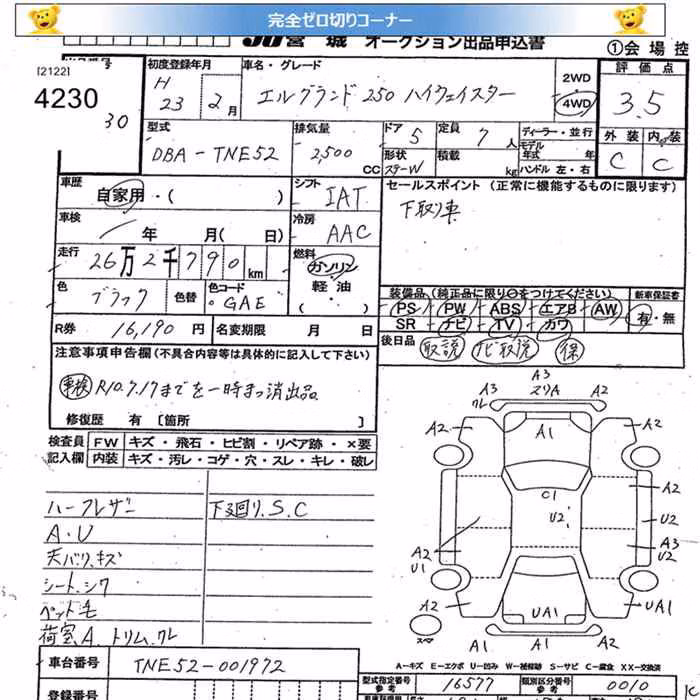 完全ゼロ切りコーナー
JU宮城 オークション出品申込書
①会場控
[2122]
4230
30
初度登録年月
H 23年 2月
車名・グレード
エルグランド 250 ハイウェイスター
2WD
4WD
評価点
3.5
外装 内装
C C
型式
DBA-TNE52
排気量
2,500 CC
ドア 5
形状 ステーW
定員 7人
積載 kg
ディーラー・並行
モデル年式 年
ハンドル 左・右
車歴
自家用・( )
シフト
IAT
セールスポイント(正常に機能するものに限ります)
下取り車
車検
年 月( 日)
冷房
AAC
走行
26万2千790km
燃料
ガソリン・
軽油・
( )
色
ブラック
色替
色コード
GAE
装備品(純正品に限り○をつけてください)
PS・PW・ABS・エアB・AW
SR・ナビ・TV・カワ
新車保証書
有・無
R券 16,190円
名変期限 月 日
後日品
取説 ナビ取説 保
注意事項申告欄(不具合内容等は具体的に記入して下さい)
車検 R10.7.17までを一時まっ消出品。
修復歴 有[箇所 ]
検査員記入欄
FW キズ・飛石・ヒビ割・リペア跡・×要
内装 キズ・汚レ・コゲ・穴・スレ・キレ・破レ
ハーフレザー
下廻り.S.C
A.U
天バリ.キズ
シート.シワ
ペット毛
荷室A.トリム.ワレ
A3
A3 スリA A2
ワレ
A2 A1 A2
C1
A2
U2 U2
A2 A3
U1 U2
A2 UA1 UA1
スペア
A1 A1 A2
A-キズ E-エクボ U-凹み W-補修跡 S-サビ C-腐食 XX-交換済
車台番号 TNE52-001972
型式指定番号 参考 16577
類別区分番号 参考 0010
登録番号